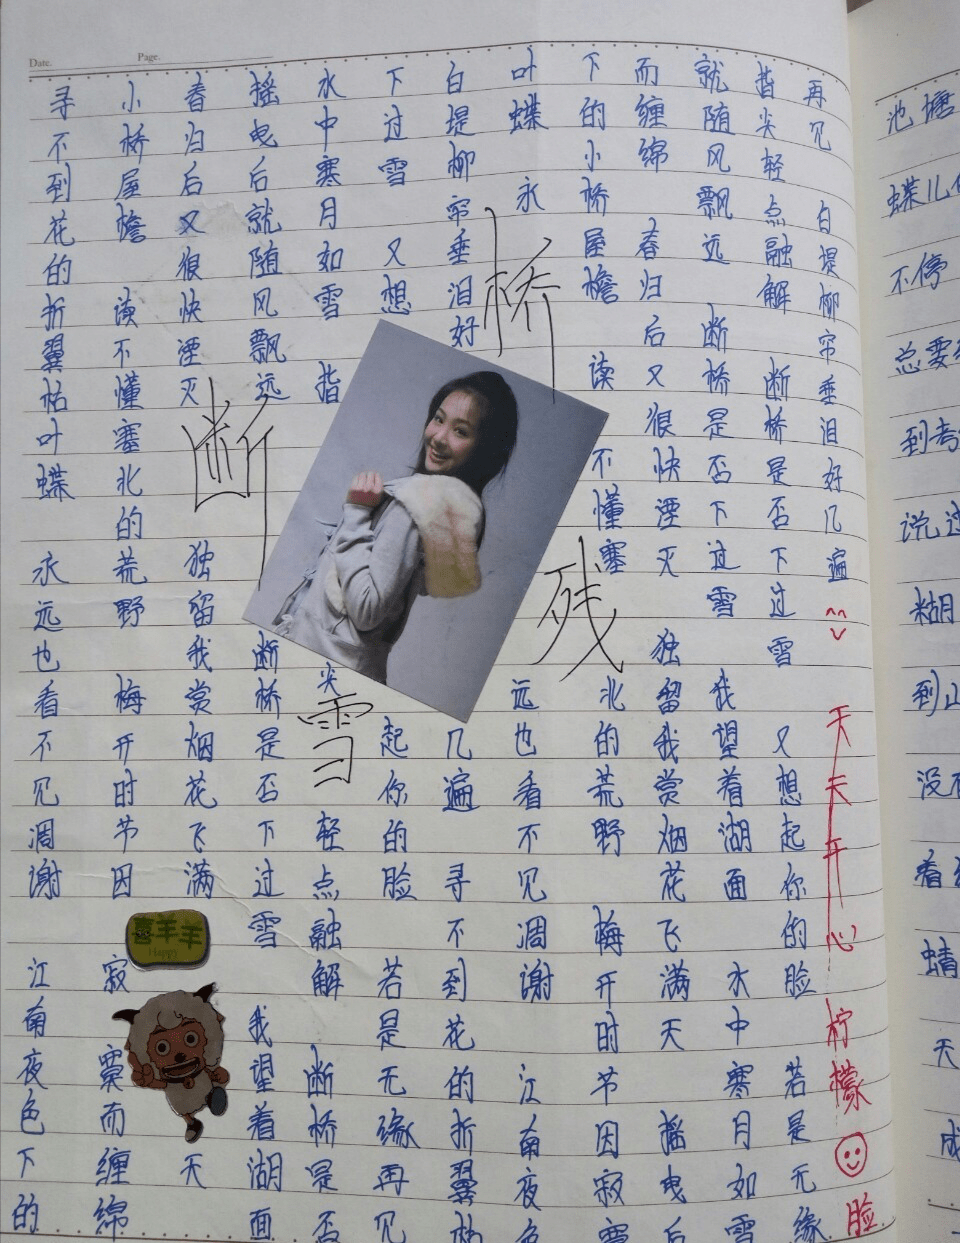 Date. Page.
寻不到花的折翼枯叶蝶 永远也看不见凋谢 江南夜色下的
小桥屋檐 读不懂塞北的荒野 梅开时节因寂寞而缠绵
春归后又很快湮灭 独留我赏烟花飞满天
摇曳后就随风飘远 断桥是否下过雪 我望着湖面
水中寒月如雪 指尖轻点融解 断桥是否
下过雪 又想起你的脸 若是无缘再见
白堤柳帘垂泪好几遍 寻不到花的折翼枯
叶蝶 永远也看不见凋谢 江南夜色
下的小桥屋檐 读不懂塞北的荒野 梅开时节因寂寞
而缠绵 春归后又很快湮灭 独留我赏烟花飞满天 摇曳后
就随风飘远 断桥是否下过雪 我望着湖面 水中寒月如雪
指尖轻点融解 断桥是否下过雪 又想起你的脸 若是无缘
再见 白堤柳帘垂泪好几遍
天天开心 柠檬 脸
断桥残雪
喜羊羊
Happy
池塘
蝶儿
不停
总要
到考
说
糊
到山
没
看
蜻
天
成